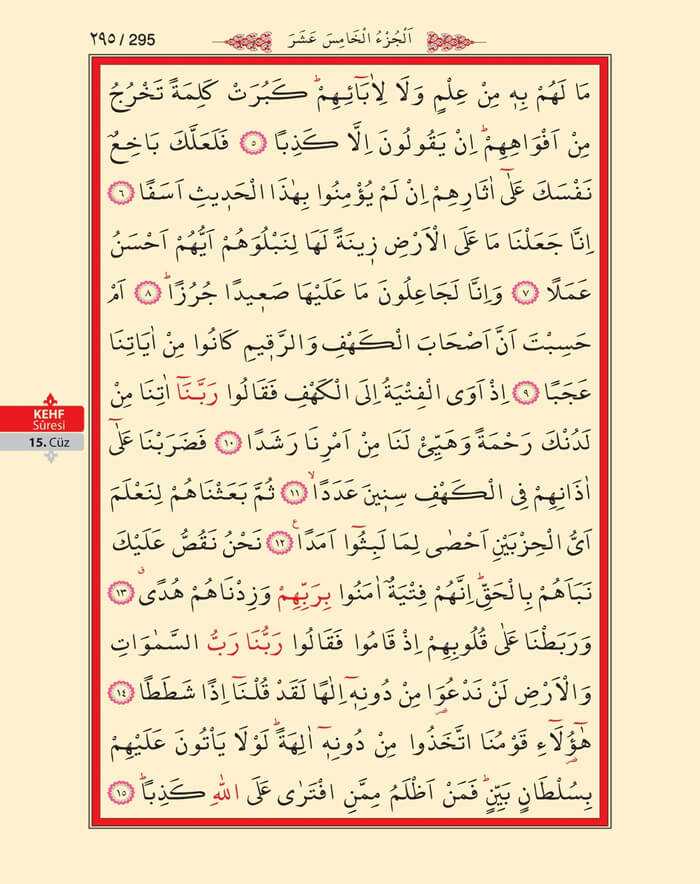 ٢٩٥ / 295
اَلْجُزْءُ الْخَامِسَ عَشَرَ
مَا لَهُمْ بِه۪ مِنْ عِلْمٍ وَلَا لِاٰبَٓائِهِمْۜ كَبُرَتْ كَلِمَةً تَخْرُجُ
مِنْ اَفْوَاهِهِمْۜ اِنْ يَقُولُونَ اِلَّا كَذِبًا ﴿٥﴾ فَلَعَلَّكَ بَاخِعٌ
نَفْسَكَ عَلٰٓى اٰثَارِهِمْ اِنْ لَمْ يُؤْمِنُوا بِهٰذَا الْحَد۪يثِ اَسَفًا ﴿٦﴾
اِنَّا جَعَلْنَا مَا عَلَى الْاَرْضِ ز۪ينَةً لَهَا لِنَبْلُوَهُمْ اَيُّهُمْ اَحْسَنُ
عَمَلًا ﴿٧﴾ وَاِنَّا لَجَاعِلُونَ مَا عَلَيْهَا صَع۪يدًا جُرُزًاۜ ﴿٨﴾ اَمْ
حَسِبْتَ اَنَّ اَصْحَابَ الْكَهْفِ وَالرَّق۪يمِ كَانُوا مِنْ اٰيَاتِنَا
عَجَبًا ﴿٩﴾ اِذْ اَوَى الْفِتْيَةُ اِلَى الْكَهْفِ فَقَالُوا رَبَّنَٓا اٰتِنَا مِنْ
لَدُنْكَ رَحْمَةً وَهَيِّئْ لَنَا مِنْ اَمْرِنَا رَشَدًا ﴿١٠﴾ فَضَرَبْنَا عَلٰٓى
اٰذَانِهِمْ فِي الْكَهْفِ سِن۪ينَ عَدَدًاۙ ﴿١١﴾ ثُمَّ بَعَثْنَاهُمْ لِنَعْلَمَ
اَيُّ الْحِزْبَيْنِ اَحْصٰى لِمَا لَبِثُٓوا اَمَدًاࣖ ﴿١٢﴾ نَحْنُ نَقُصُّ عَلَيْكَ
نَبَاَهُمْ بِالْحَقِّۜ اِنَّهُمْ فِتْيَةٌ اٰمَنُوا بِرَبِّهِمْ وَزِدْنَاهُمْ هُدًىۗ ﴿١٣﴾
وَرَبَطْنَا عَلٰى قُلُوبِهِمْ اِذْ قَامُوا فَقَالُوا رَبُّنَا رَبُّ السَّمٰوَاتِ
وَالْاَرْضِ لَنْ نَدْعُوَ۬ا مِنْ دُونِه۪ٓ اِلٰهًا لَقَدْ قُلْنَٓا اِذًا شَطَطًا ﴿١٤﴾
هٰٓؤُ۬لَٓاءِ قَوْمُنَا اتَّخَذُوا مِنْ دُونِه۪ٓ اٰلِهَةًۜ لَوْلَا يَأْتُونَ عَلَيْهِمْ
بِسُلْطَانٍ بَيِّنٍۜ فَمَنْ اَظْلَمُ مِمَّنِ افْتَرٰى عَلَى اللّٰهِ كَذِبًاۜ ﴿١٥﴾
KEHF
Sûresi
15. Cüz